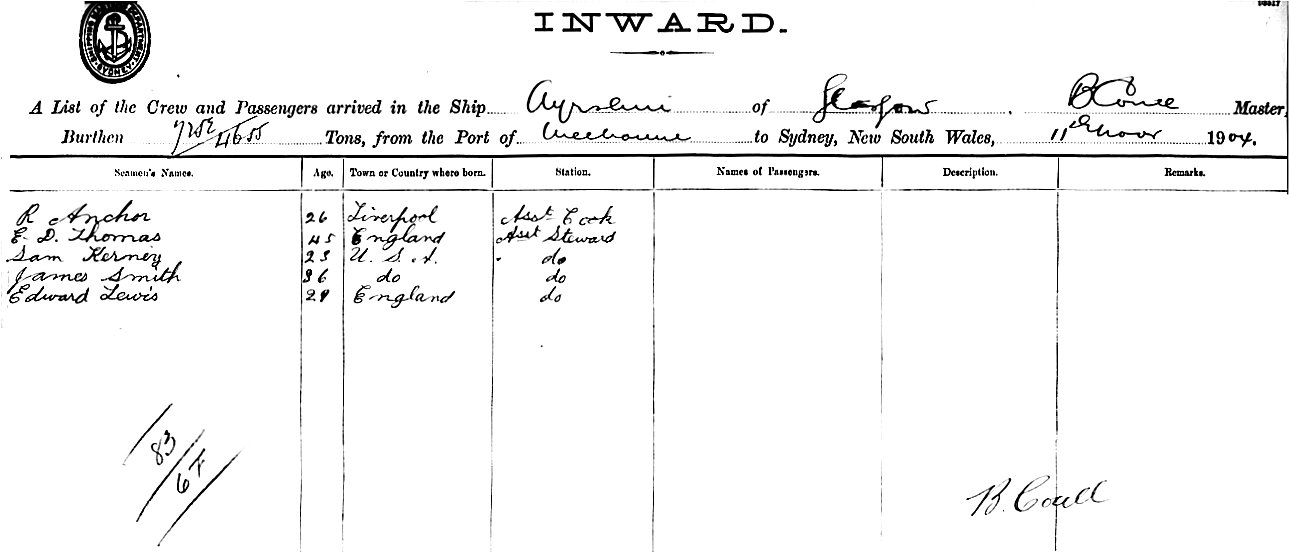 SHIPPING MASTER'S DEPARTMENT SYDNEY
INWARD.
A List of the Crew and Passengers arrived in the Ship Ayrshire of Glasgow. Master,
Burthen 7252/4655 Tons, from the Port of Melbourne to Sydney, New South Wales, 11th Novr 1904.
Seamen's Names. Age. Town or Country where born. Station. Names of Passengers. Description. Remarks.
R Anchor 26 Liverpool Asst Cook
E. D. Thomas 45 England Asst Steward
Sam Kerney 23 U. S. A. do
James Smith 36 do do
Edward Lewis England do
83
6 F